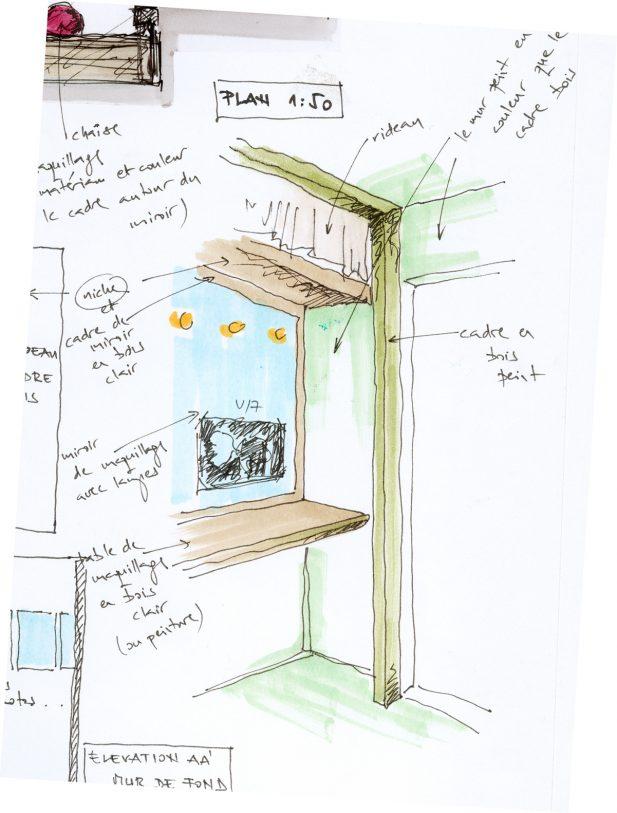 PLAN 1:50
chaise
aquillage
matériau et couleur
le cadre autour du
miroir)
rideau
le mur peint en
couleur que le
cadre bois
niche
et
cadre de
miroir
en bois
clair
cadre en
bois
peint
EAU
DRE
IS
V/7
miroir
de maquillage
avec lampes
table de
maquillage
en bois
clair
(ou peinture)
s
otos...
ÉLEVATION AA'
MUR DE FOND